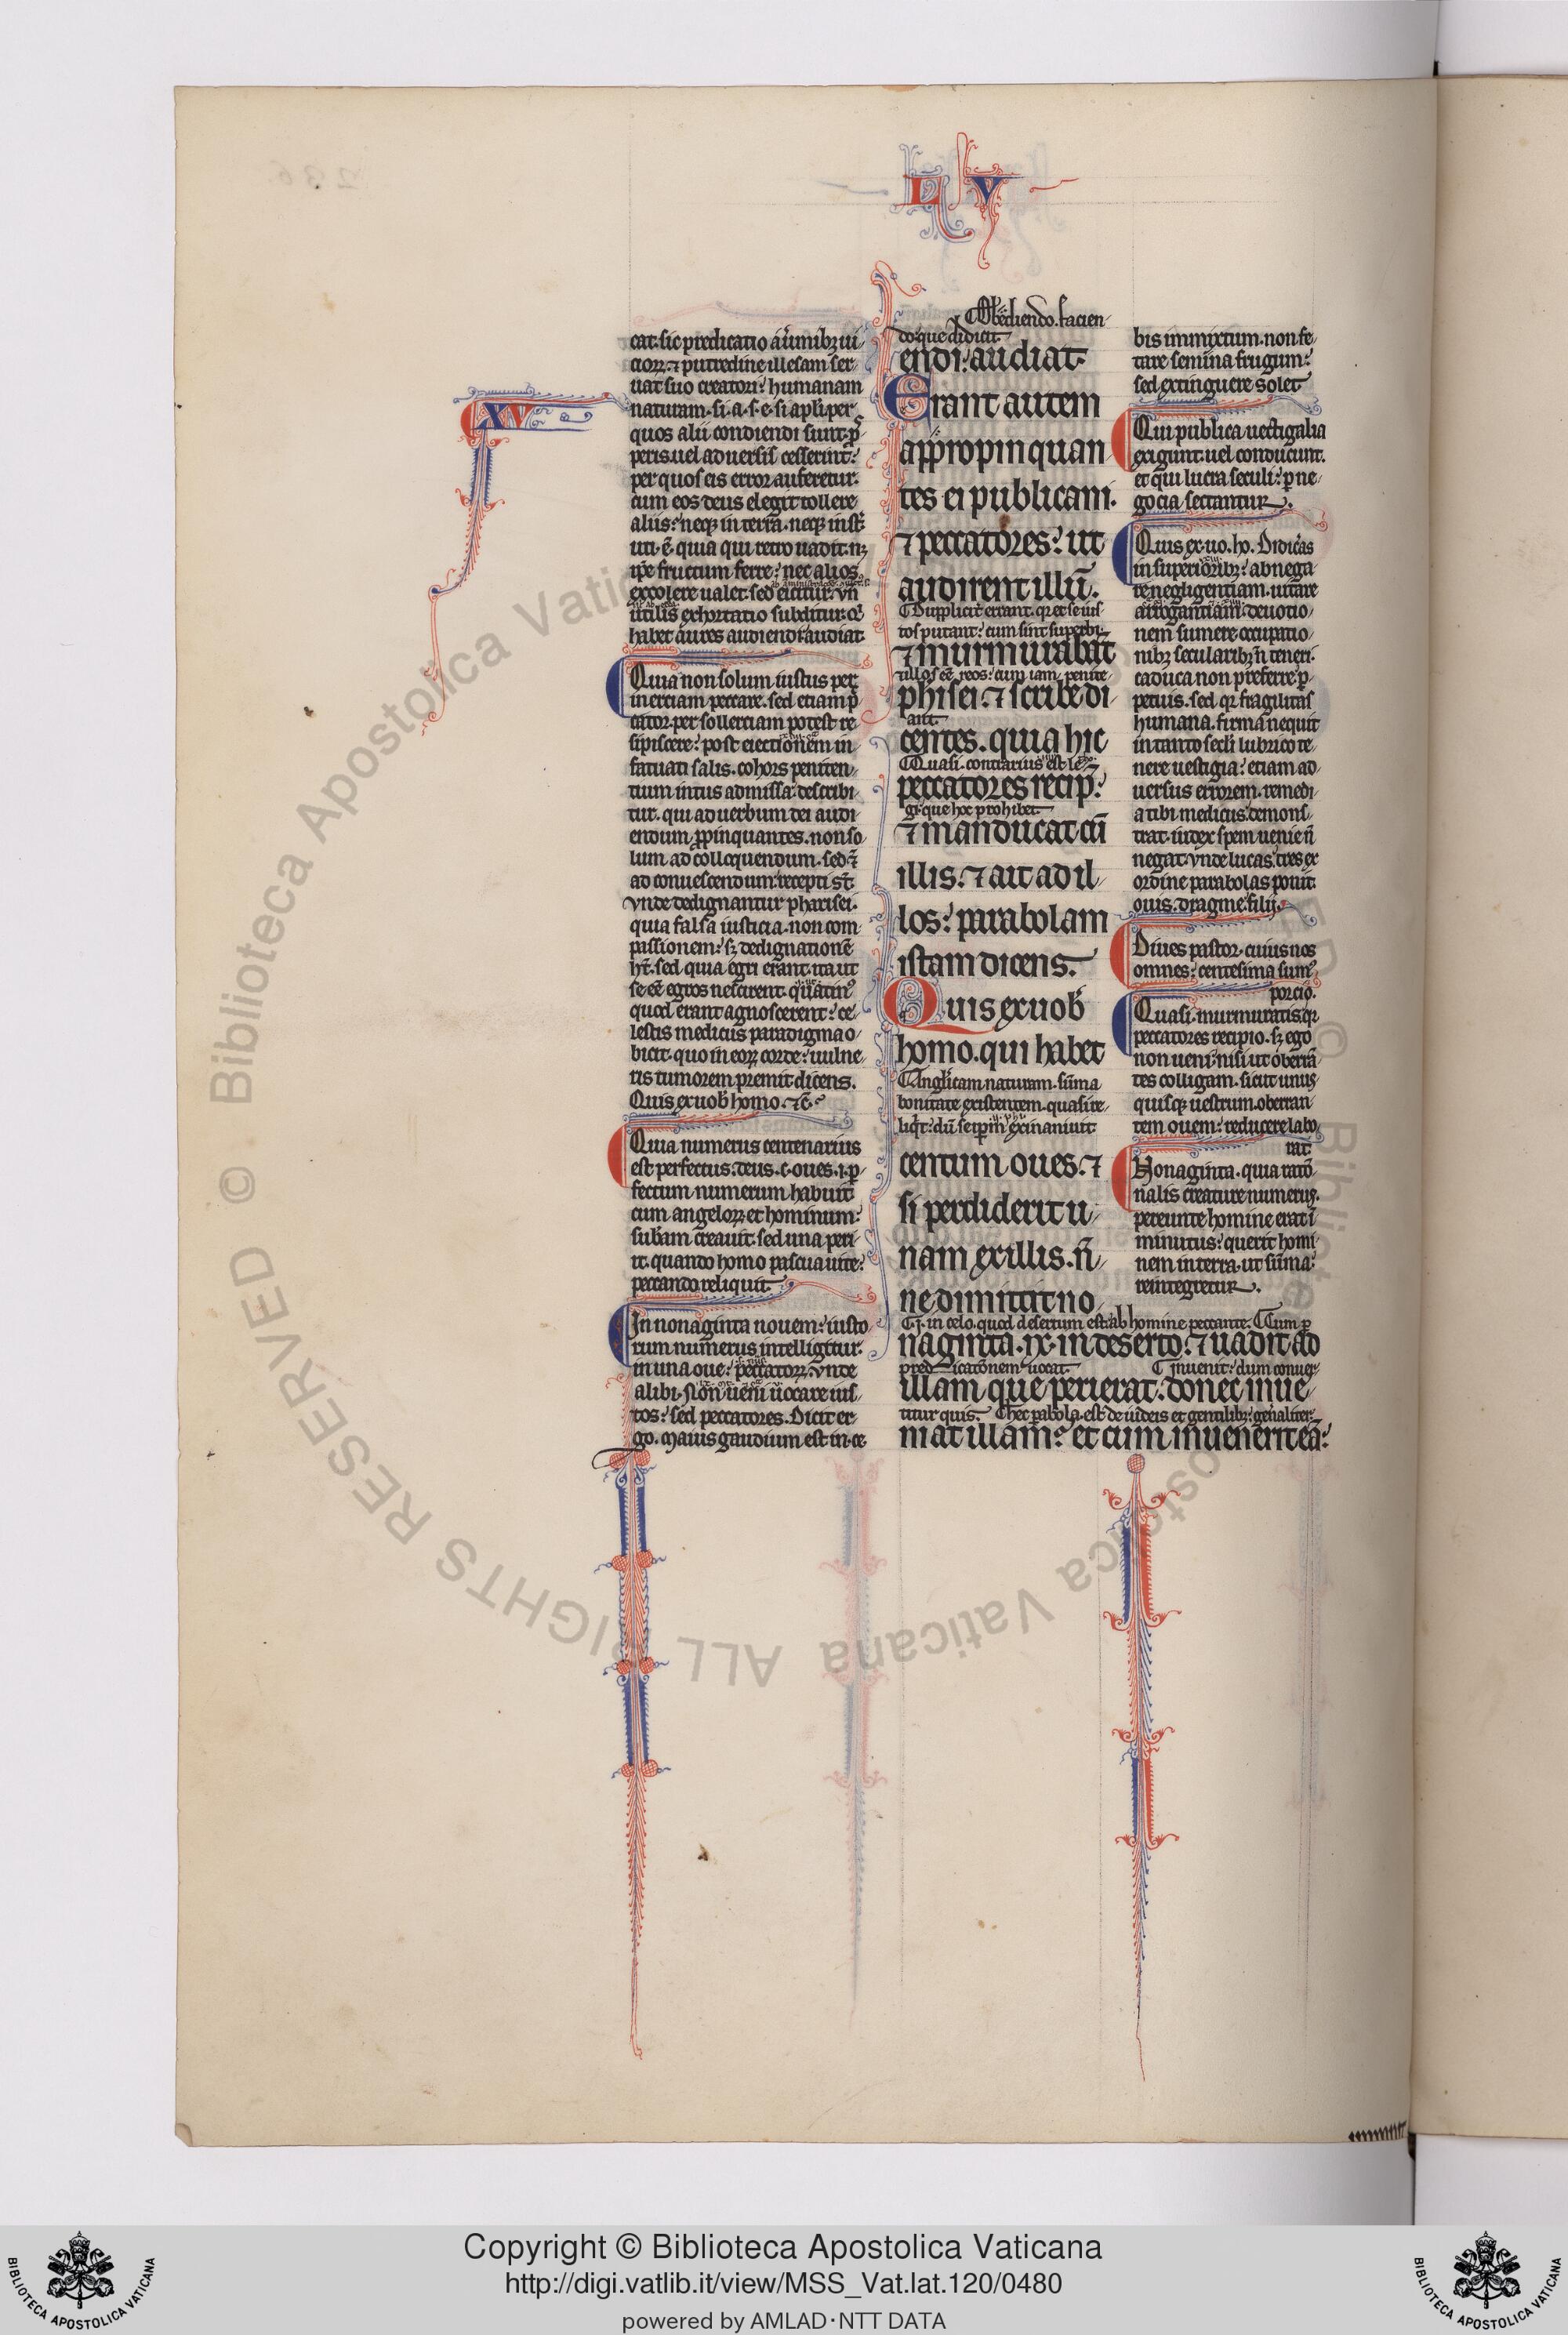 L V
cat. sic predicatio a uermibꝫ ui
cioꝝ. ⁊ putredine illesam ser
uat suo creatori humanam
XV
naturam. si. a. s. e. si apłi. per
quos alii condiendi sunt. ꝓ
peris. uel aduersis cesserint.
per quos eis error auferetur.
cum eos deus elegit tollere
aliis. neqꝫ in terra. neqꝫ in
uti. ē. quia qui retro uadit
ipse fructum ferre. nec alios
excolere ualet. sed eicitur. vñ
utilis exhortatio subditur
habet aures audiendi audiat
Quia non solum iustus per
inertiam peccare. sed etiam
cator. per sollertiam potest re
sipiscere. post eiectionem in
fatuati salis. cohors peniten
tium intus admissa describi
tur. qui ad uerbum dei audi
endum ꝓpinquantes. non so
lum ad colloquendum. sed ⁊
ad conuescendum recepti st̄
vnde dedignantur pharisei.
quia falsa iusticia. non com
passionem. sꝫ dedignationē
hn̄t. sed quia egri erant. ita ut
se eē egros nescirent
quod erant agnoscerent. ce
lestis medicus paradigma o
bicit. quo in eoꝝ corde. uulne
ris tumorem premit dicens.
Quis ex uob̄ homo. ⁊c̄.
Quia numerus centenarius
est perfectus. deus. c. oues. i. ꝑ
fectum numerum habuit
cum angeloꝝ et hominum
sub̄am creauit. sed una peri
it. quando homo pascua uite
peccando reliquit
In nonaginta nouem. iusto
rum numerus intelligitur.
in una oue. peccatoꝝ. vnde
alibi. Non ueni uocare ius
tos. sed peccatores. Dicit er
go. maius gaudium est in ce
Obediendo. facien
do que didicit
endi. audiat
Erant autem
appropinquan
tes ei publicani.
⁊ peccatores. ut
audirent illū.
Dupplicit̄ errant. qr̄ et se ius
tos putant. cum sint superbi.
⁊ murmurabāt
illos eē reos. cum iam penite
phisei. ⁊ scribe di
ant
centes. quia hic
Quasi. contrarius est
peccatores recip
gi. que hoc prohibet
⁊ manducat cū
illis. ⁊ ait ad il
los. parabolam
istam dicens.
Quis ex uob̄
homo. qui habet
Anglicam naturam. sūma
bonitate existentem. quasi re
liq̄t. dū exinaniuit
centum oues. ⁊
si perdiderit u
nam ex illis. n̄
ne dimittit no
i. in celo. quod desertum est. ab homine peccante. Cum ꝑ
naginta. ix. in deserto. ⁊ uadit ad
predicatōnem uocat. Inuenit. dum conuer
illam que perierat. donec inue
titur quis. Hec parabola. est de iudeis et gentilibꝫ gen̄aliter
niat illam. et cum inuenerit eā
bis immixtum. non fe
tare semina frugum.
sed extinguere solet
Qui publica uectigalia
exigunt. uel conducunt.
et qui lucra seculi. ꝑ ne
gocia sectantur.
Quis ex. uo. ho. Didicās
in superioribꝫ. abnega
re negligentiam. uitare
arrogantiam. deuotio
nem sumere. occupatio
nibꝫ secularibꝫ n̄ teneri.
caduca non preferre ꝑ
petuis. sed qr̄ fragilitas
humana. firma nequit
in tanto secli lubrico te
nere uestigia. etiam ad
uersus errorem. remedi
a tibi medicus demons
trat. iudex spem uenie n̄
negat. vnde lucas. tres ex
ordine parabolas ponit.
ouis. dragme. filii.
Diues pastor. cuius nos
omnes. centesima sumꝰ
porcio.
Quasi. murmuratis. qr̄
peccatores recipio. sꝫ ego
non ueni. nisi ut oberrā
tes colligam. sicut unus
quisqꝫ uestrum. oberran
tem ouem. reducere labo
rat
Nonaginta. quia ratō
nalis creature numerus.
pereunte homine erat
minutus. querit homi
nem in terra. ut sūma
reintegretur.
Copyright © Biblioteca Apostolica Vaticana
http://digi.vatlib.it/view/MSS_Vat.lat.120/0480
powered by AMLAD·NTT DATA
BIBLIOTECA APOSTOLICA VATICANA
BIBLIOTECA APOSTOLICA VATICANA